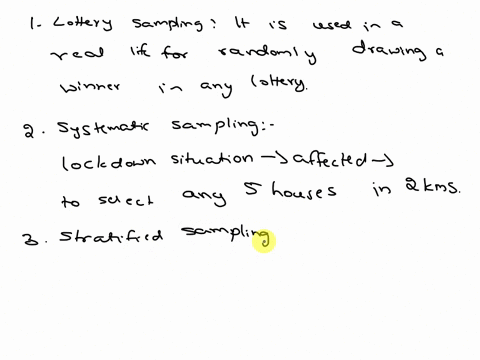 1. Lottery sampling: It is used in a
real life for randomly drawing a
winner in any lottery.
2. Systematic sampling:-
lockdown situation → affected →
to select any 5 houses in 2kms.
3. Stratified sampling